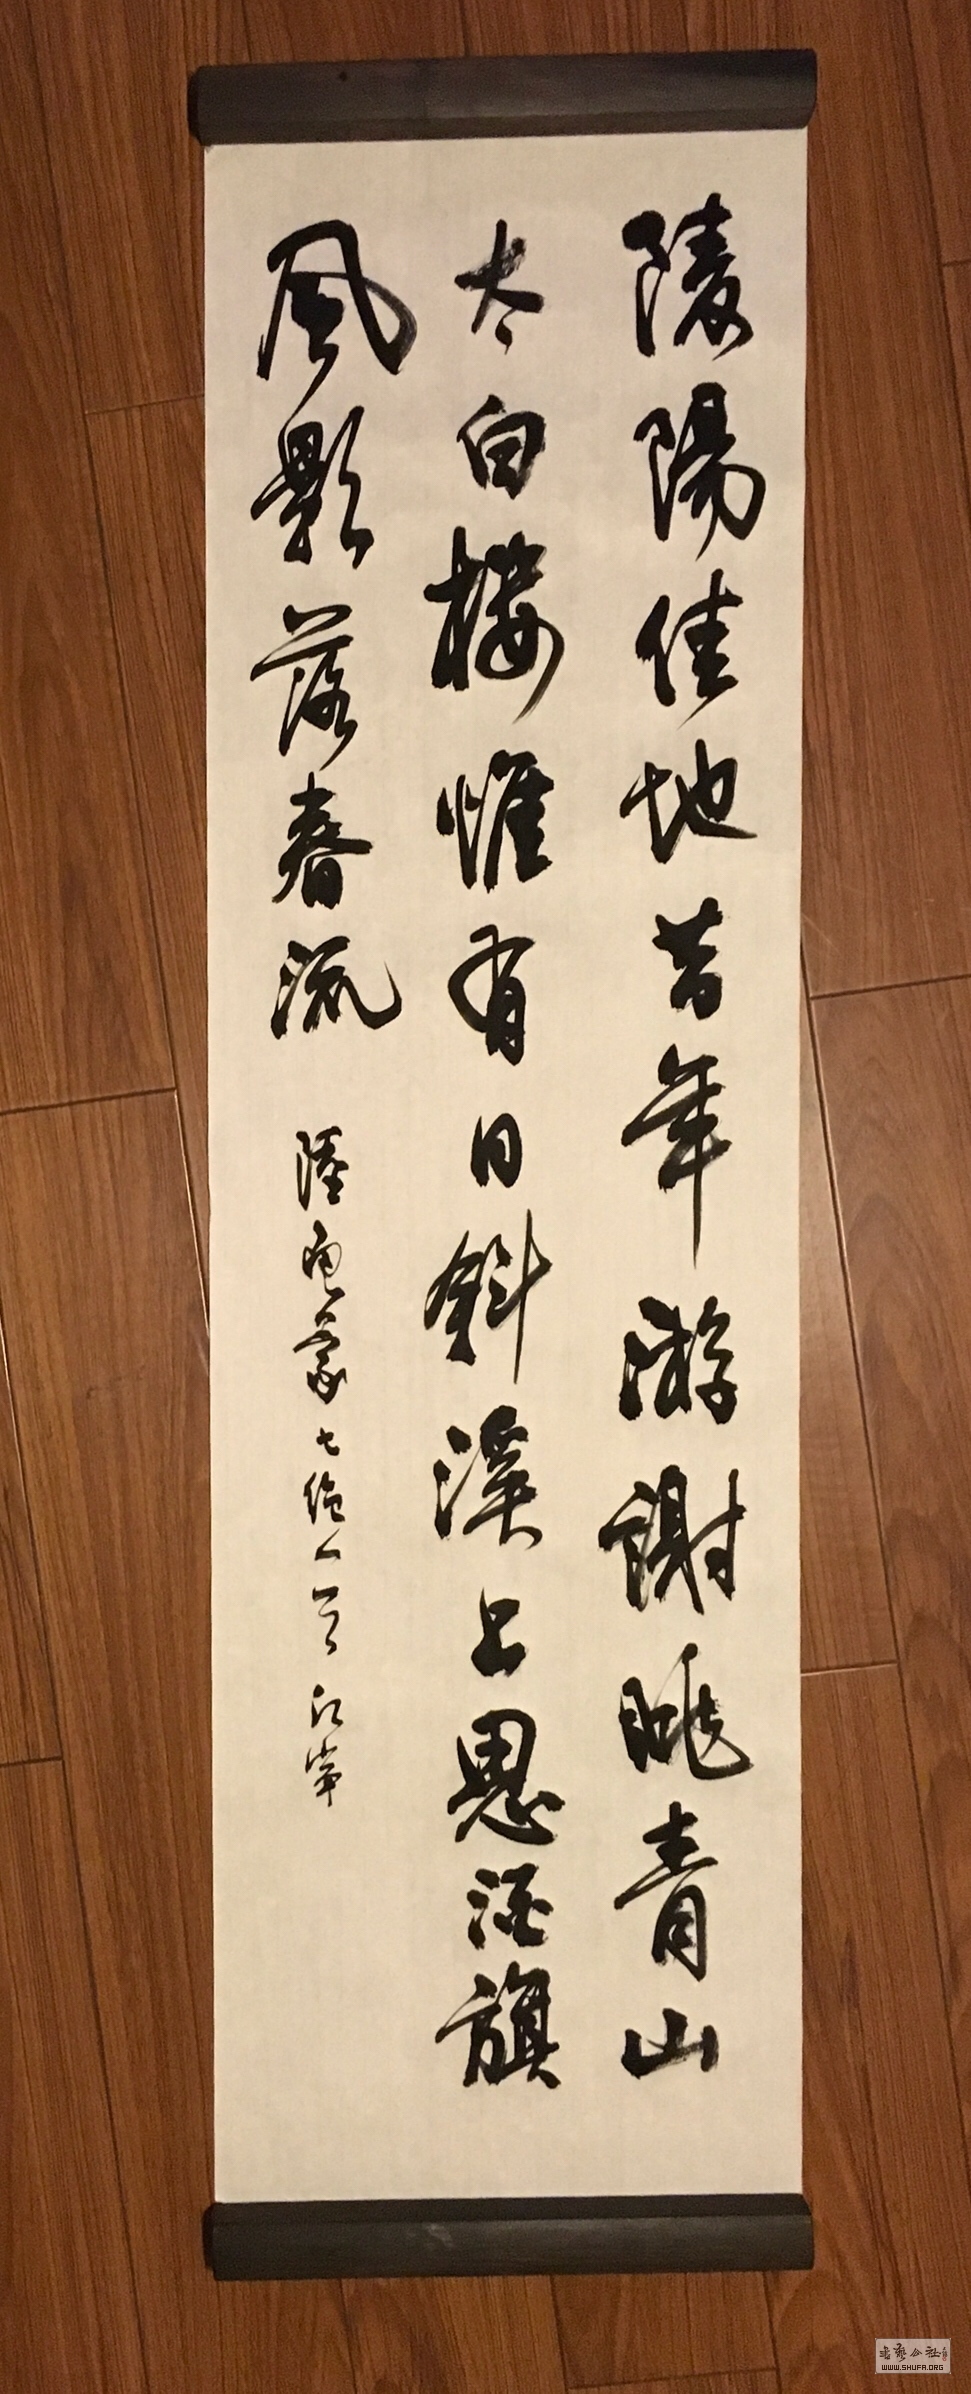 陵陽佳地昔年游謝朓青山
太白樓惟有日斜溪上思酒旗
風影落春流 陸龜蒙七绝一首
書藝公社
WWW.SHUFA.ORG